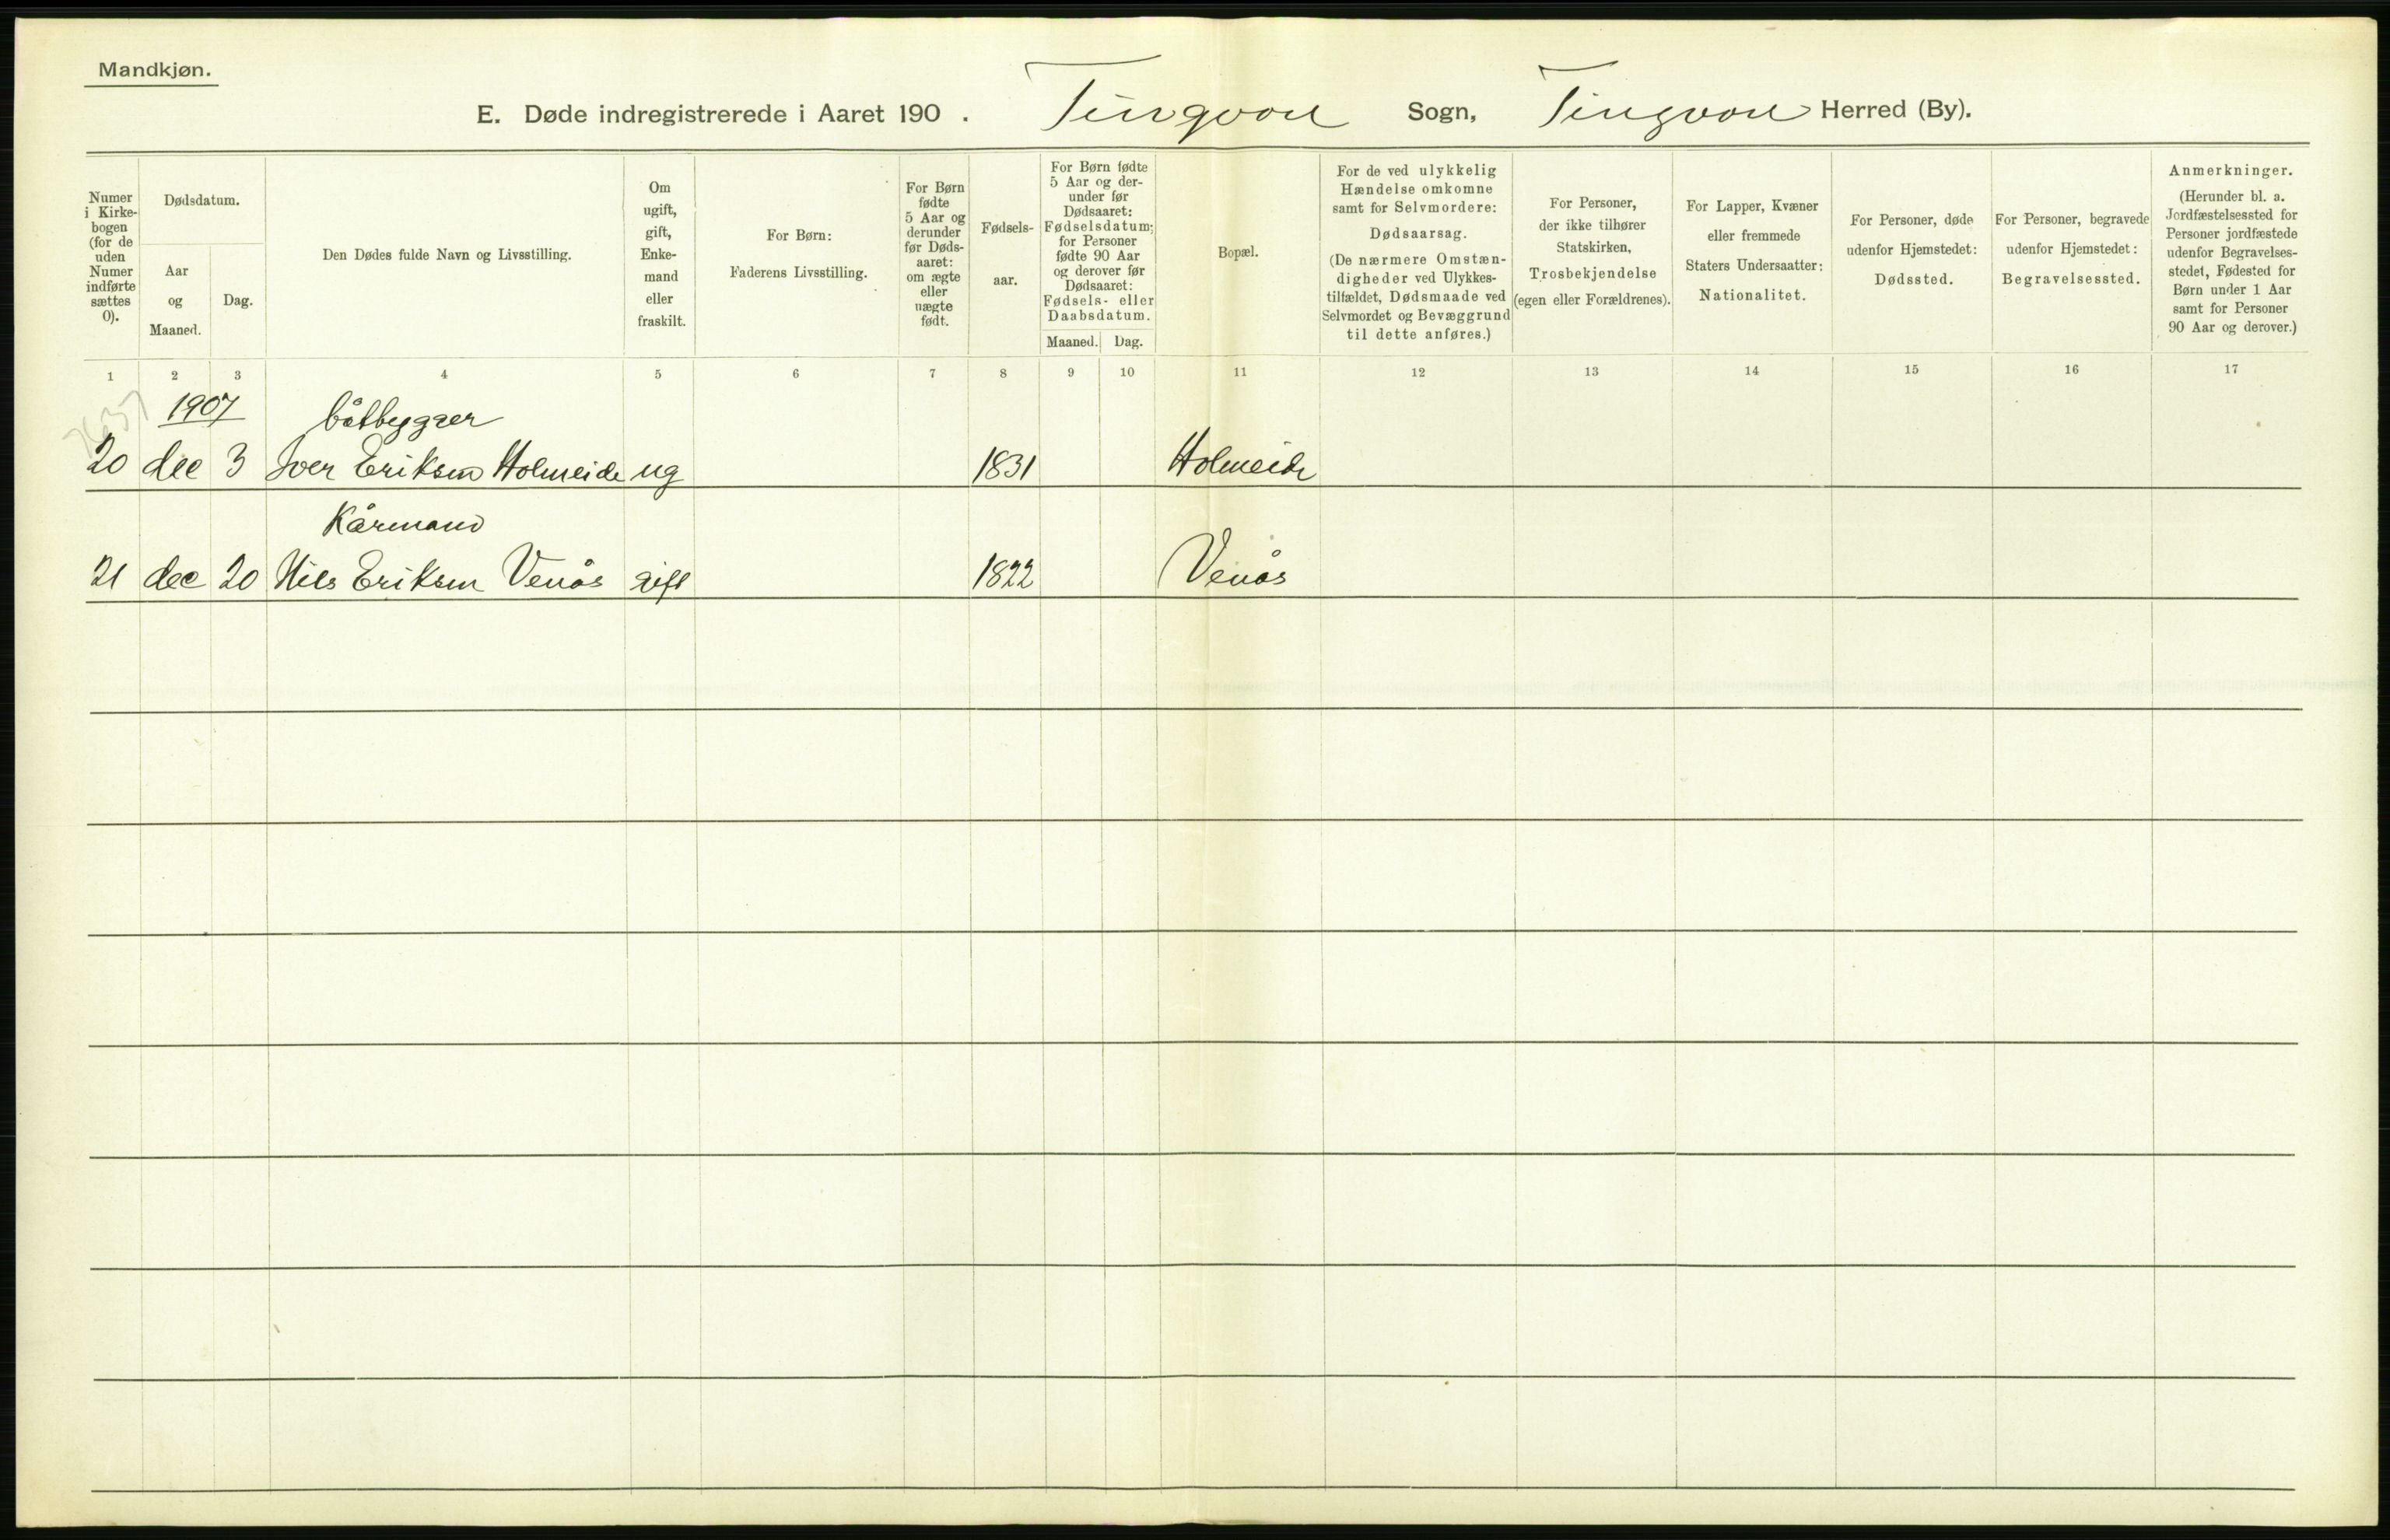 Mandkjøn.
E. Døde indregistrerede i Aaret 190 . Tingvoll Sogn, Tingvoll Herred (By).
Numer
i Kirke-
bogen
(for de
uden
Numer
indførte
sættes
0).
Dødsdatum.
Aar
og
Maaned.
Dag.
Den Dødes fulde Navn og Livsstilling.
Om
ugift,
gift,
Enke-
mand
eller
fraskilt.
For Børn:
Faderens Livsstilling.
For Børn
fødte
5 Aar og
derunder
før Døds-
aaret:
om ægte
eller
uægte
født.
Fødsels-
aar.
For Børn fødte
5 Aar og der-
under før
Dødsaaret:
Fødselsdatum;
for Personer
fødte 90 Aar
og derover før
Dødsaaret:
Fødsels- eller
Daabsdatum.
Maaned. Dag.
Bopæl.
For de ved ulykkelig
Hændelse omkomne
samt for Selvmordere:
Dødsaarsag.
(De nærmere Omstæn-
digheder ved Ulykkes-
tilfældet, Dødsmaade ved
Selvmordet og Bevæggrund
til dette anføres.)
For Personer,
der ikke tilhører
Statskirken,
Trosbekjendelse
(egen eller Forældrenes).
For Lapper, Kvæner
eller fremmede
Staters Undersaatter:
Nationalitet.
For Personer, døde
udenfor Hjemstedet:
Dødssted.
For Personer, begravede
udenfor Hjemstedet:
Begravelsessted.
Anmerkninger.
(Herunder bl. a.
Jordfæstelsessted for
Personer jordfæstede
udenfor Begravelses-
stedet, Fødested for
Børn under 1 Aar
samt for Personer
90 Aar og derover.)
1 2 3 4 5 6 7 8 9 10 11 12 13 14 15 16 17
1907 båtbygger
20 dec 3 Iver Eriksen Holmeide ug 1831 Holmeide
Kårmand
21 dec 20 Nils Eriksen Venås gift 1822 Venås